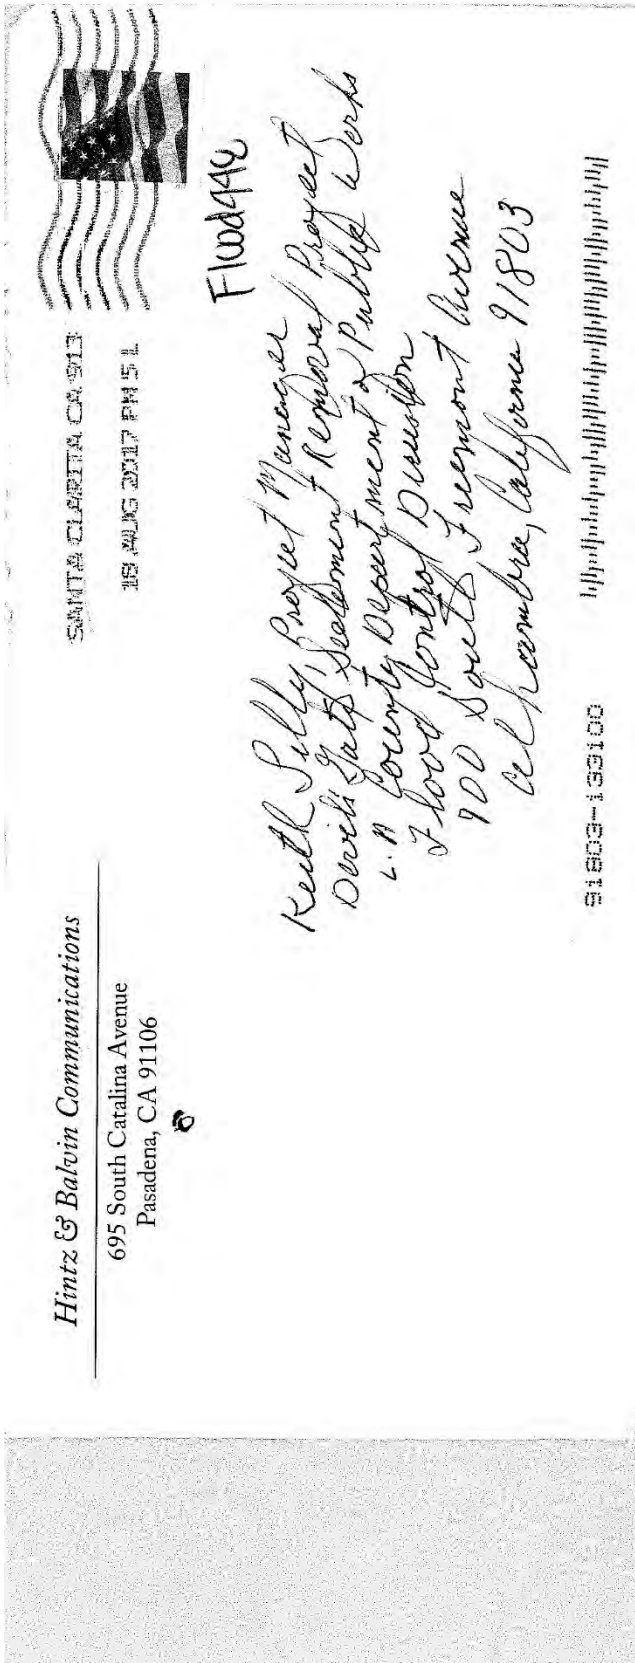 Hintz & Balvin Communications
695 South Catalina Avenue
Pasadena, CA 91106
SANTA CLARITA CA 913
18 AUG 2017 PM 5 L
Keith Lilly, Project Manager
Devils Gate Sediment Removal Project
L.A County Department of Public Works
Flood Control Division
900 South Freemont Avenue
Alhambra, California 91803
91803-133100